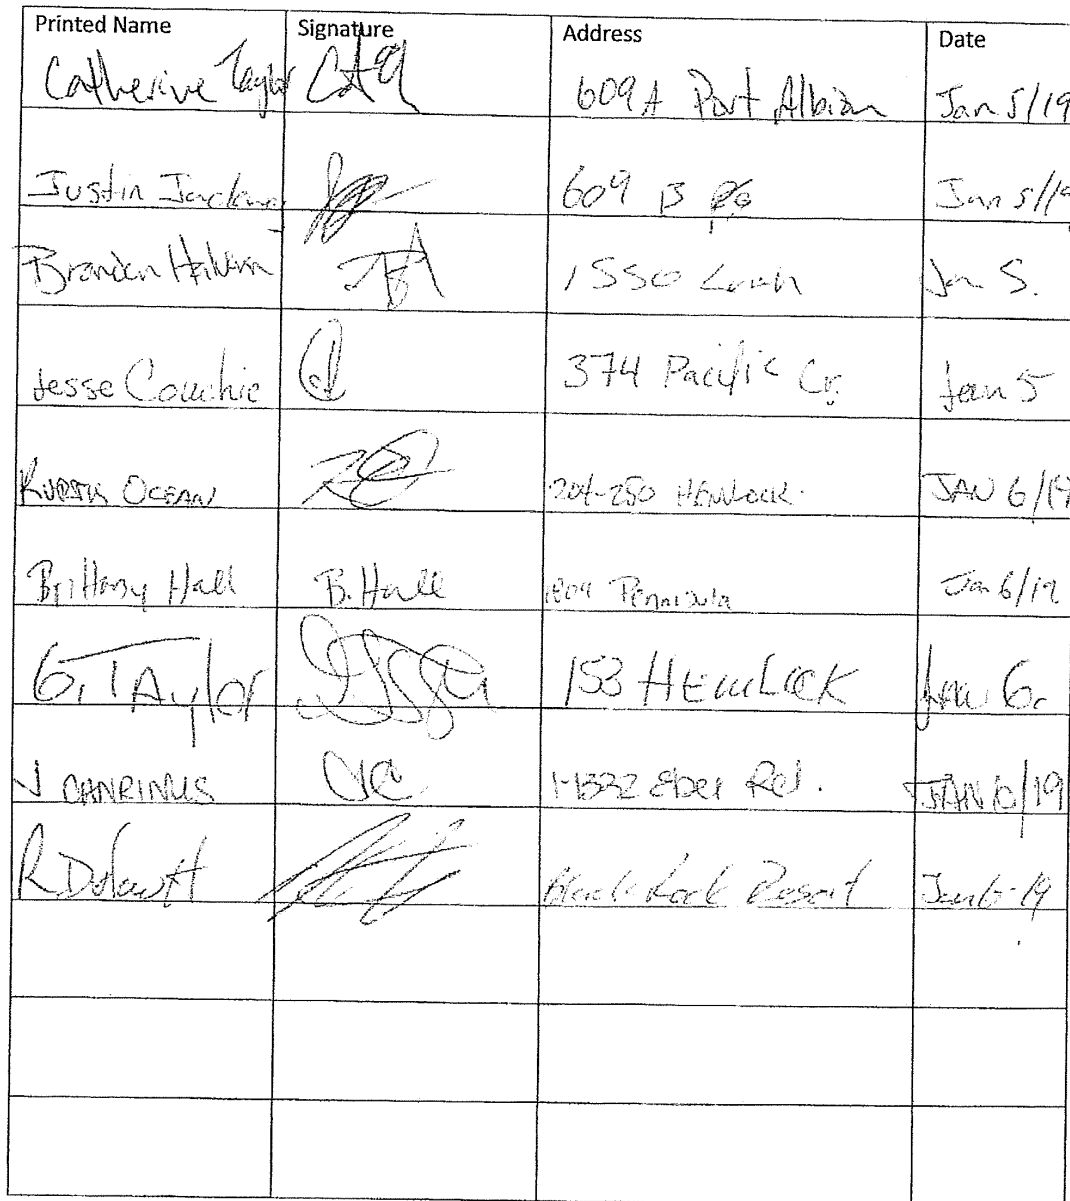 Printed Name Signature Address Date
Catherine Taylor 609A Port Albion Jan 5/19
Justin 609 B Jan 5/19
Brandon 1550 Jan 5.
Jesse Couchie 374 Pacific Cr. Jan 5
OCEAN 204-250 HEMLOCK. JAN 6/19
Brittany Hall B. Hall Peninsula Jan 6/19
G. TAylor 153 HEmLock Jan 6.
J CANRINUS JC Rd. JAN 6/19
R Black Rock Resort Jan 6-19